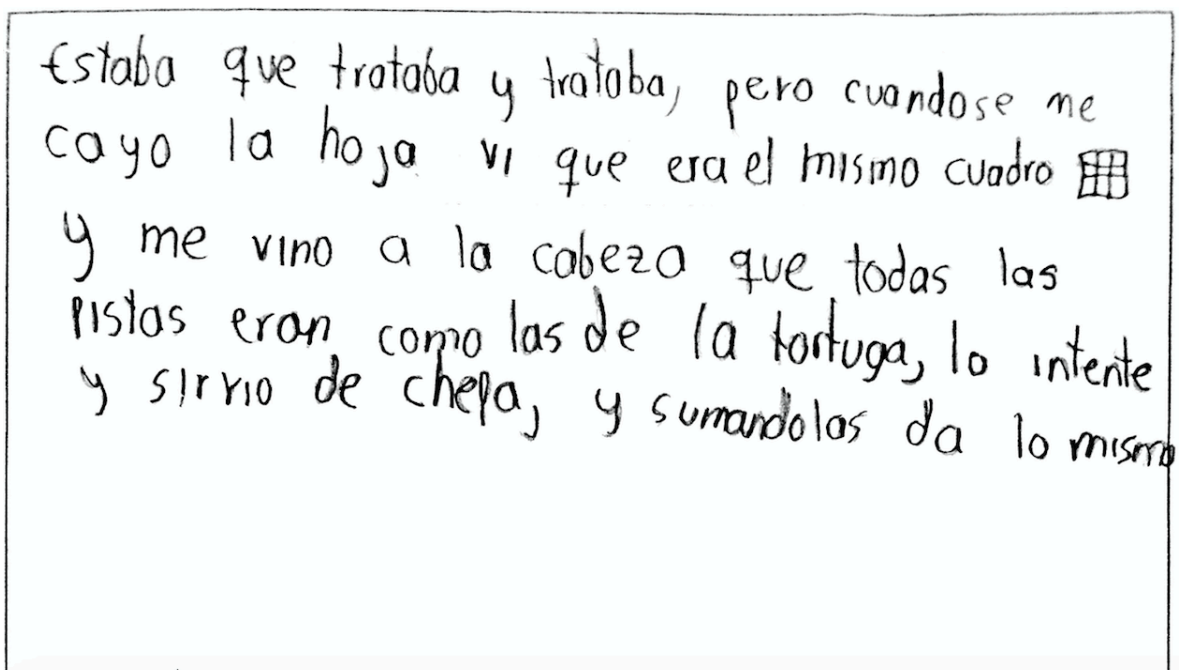 Estaba que trataba y trataba, pero cuandose me
cayo la hoja vi que era el mismo cuadro
y me vino a la cabeza que todas las
pistas eran como las de la tortuga, lo intente
y sirvio de chepa, y sumandolas da lo mismo